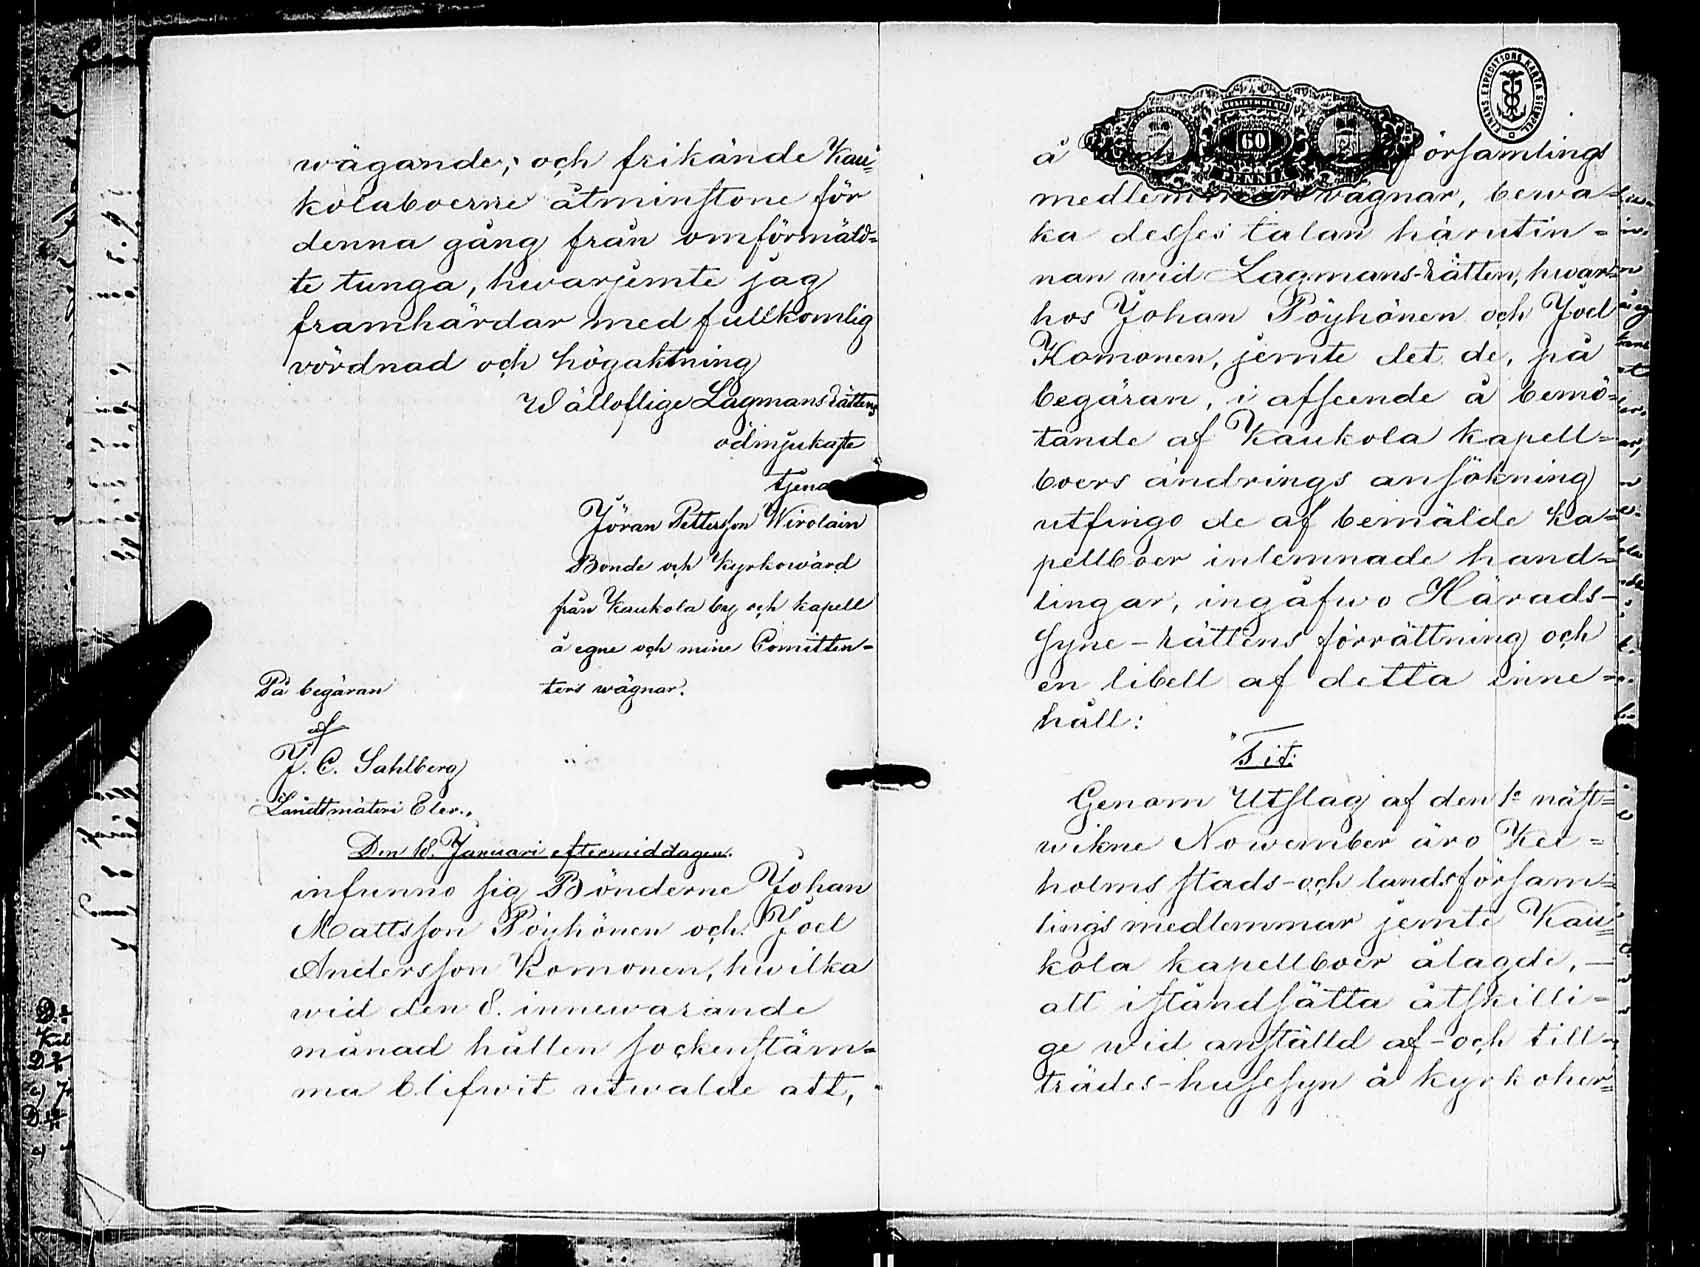 wägande, och frikände Kau=
kolaboerne åtminstone för
denna gång från omförmäld=
te tunga, hwarjemte jag
framhärdar med fullkomlig
vördnad och högaktning
Wälloflige Lagmans Rättens
ödmjukaste
tjena
Jöran Pettersson Wirolain
Bonde och Kyrkowärd
från Kaukola by och kapell
å egne och mine Comitten=
ters wägnar.
På begäran
af
J. C. Sahlberg
Landtmäteri Elev.
Den 18. Januari eftermiddagen.
infunno sig Bönderne Johan
Mattsson Pöyhönen och Joel
Andersson Komonen, hwilka
wid den 8. innewarande
månad hållen sockenstäm=
ma blifwit utwalde att,
FINSKA EXPEDITIONS KARTA SIGILL
60
PENNI
å församlings
medlemmars wägnar, bewa=
ka desses talan härutin=
nan wid Lagmans-Rätten, hwar=
hos Johan Pöyhönen och Joel
Komonen, jemte det de, på
begäran, i afseende å bemö=
tande af Kaukola kapell=
boers ändrings ansökning
utfingo de af bemälde ka=
pellboer inlemnade hand=
lingar, ingåfwo Härads-
syne-rättens förrättning och
en libell af detta inne=
håll:
"Tit:
Genom Utslag af den 1e näst=
wikne November äro Kex=
holms stads- och landsförsam=
lings medlemmar jemte Kau=
kola kapellboer ålagde,
att iståndsätta åtskilli=
ge wid anställd af- och till=
trädes-husesyn å kyrkoher=